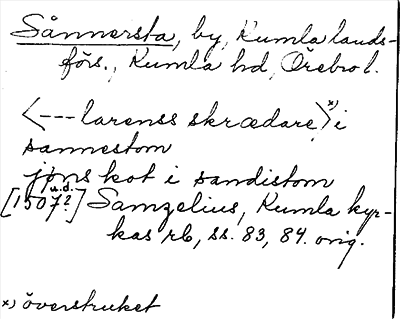 Sånnersta, by, Kumla lands-
förs., Kumla hd, Örebro l.
<---larenss skrædare>x) i
sannestom
jøns kot i sandistom
[1507? u.d.] Samzelius, Kumla kyr-
kas rb, ss. 83, 84. orig.
x) överstruket